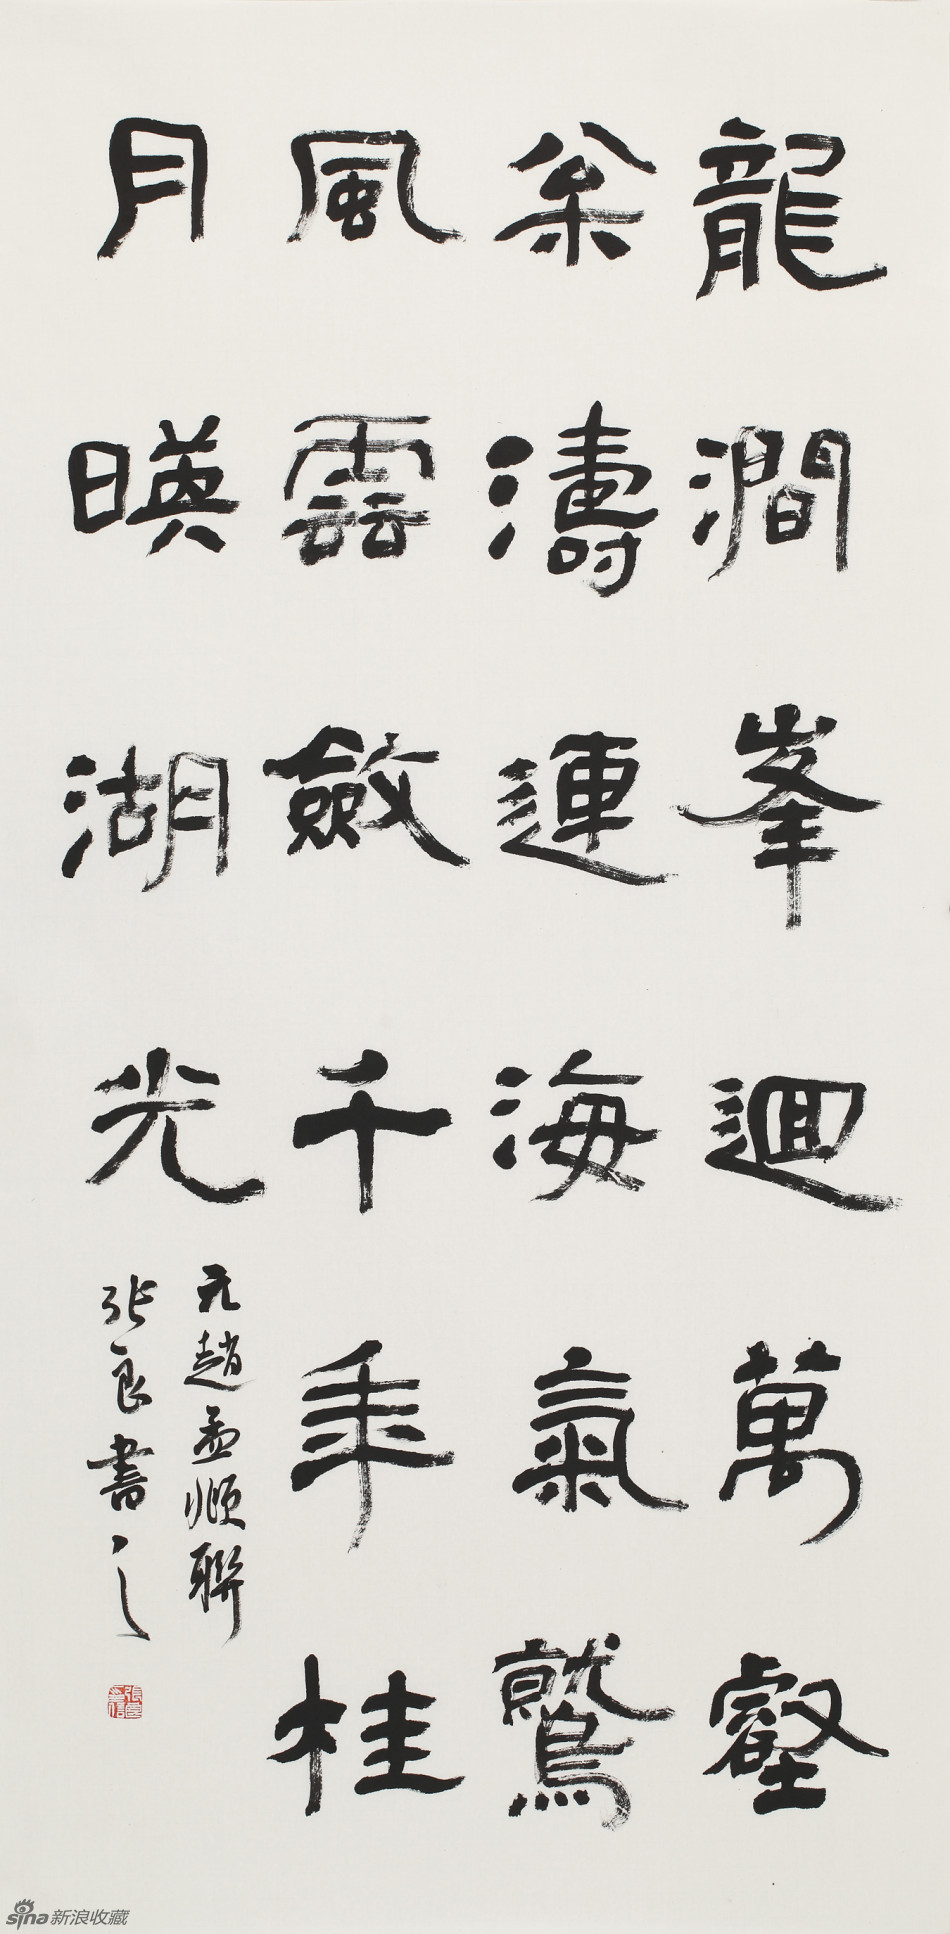 龍澗峯迴萬壑
枀濤連海氣鷲
風雲斂千年桂
月暎湖光
元趙孟頫聯
张良書之
sina新浪收藏